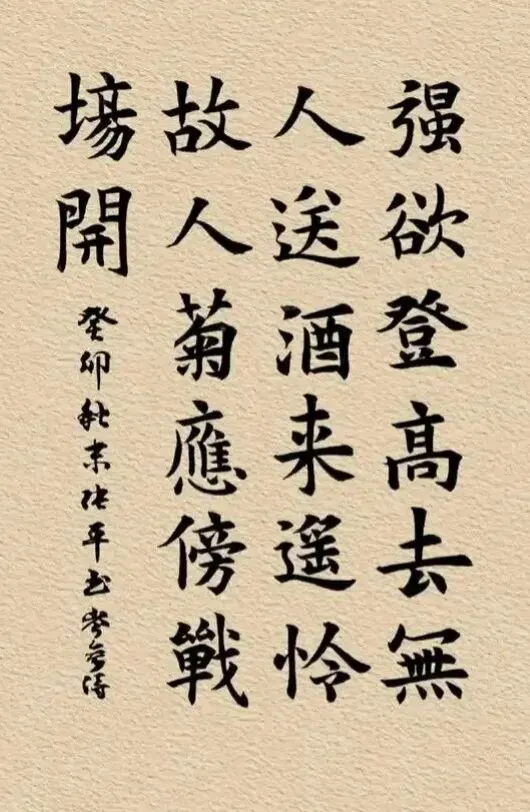 强欲登高去無
人送酒来遥怜
故人菊應傍戰
場開
癸卯秋末张平书岑参诗